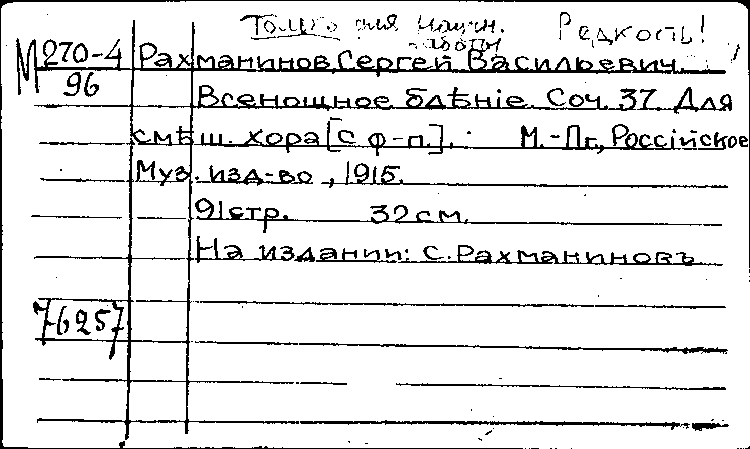 Только для научн. Редкость!
работы
М 270-4 Рахманинов, Сергей Васильевич.
96
Всенощное бдѣніе. Соч. 37. Для
смѣш. хора [с ф-п.]. М.-Пг., Россійское
Муз. изд-во, 1915.
91 стр. 32 см.
На издании: С. Рахманиновъ
76257